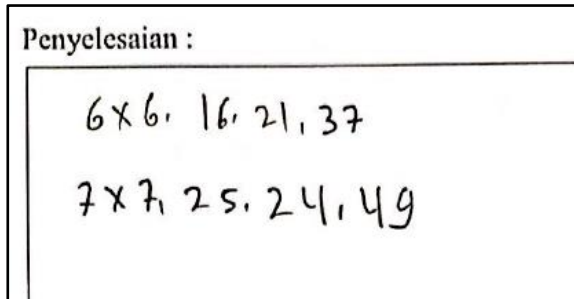 Penyelesaian :
6×6, 16, 21, 37
7×7, 25, 24, 49